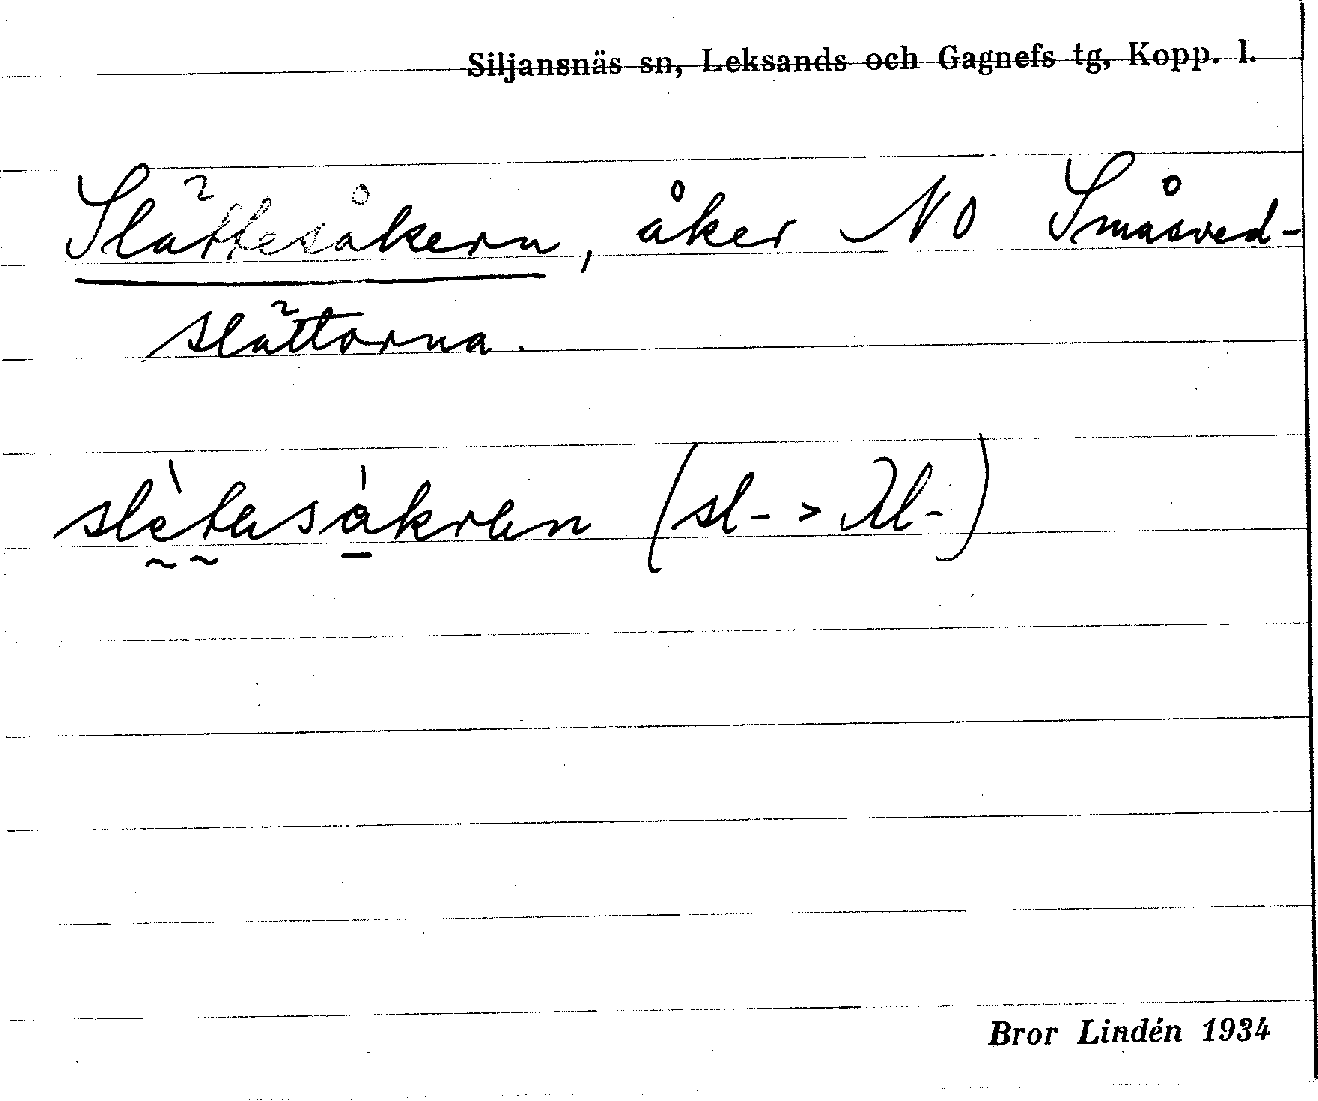 Siljansnäs sn, Leksands och Gagnefs tg, Kopp. l.
Slättesåkern, åker NO Småsved-
slättorna.
slètesákren (sl- > λl-)
Bror Lindén 1934